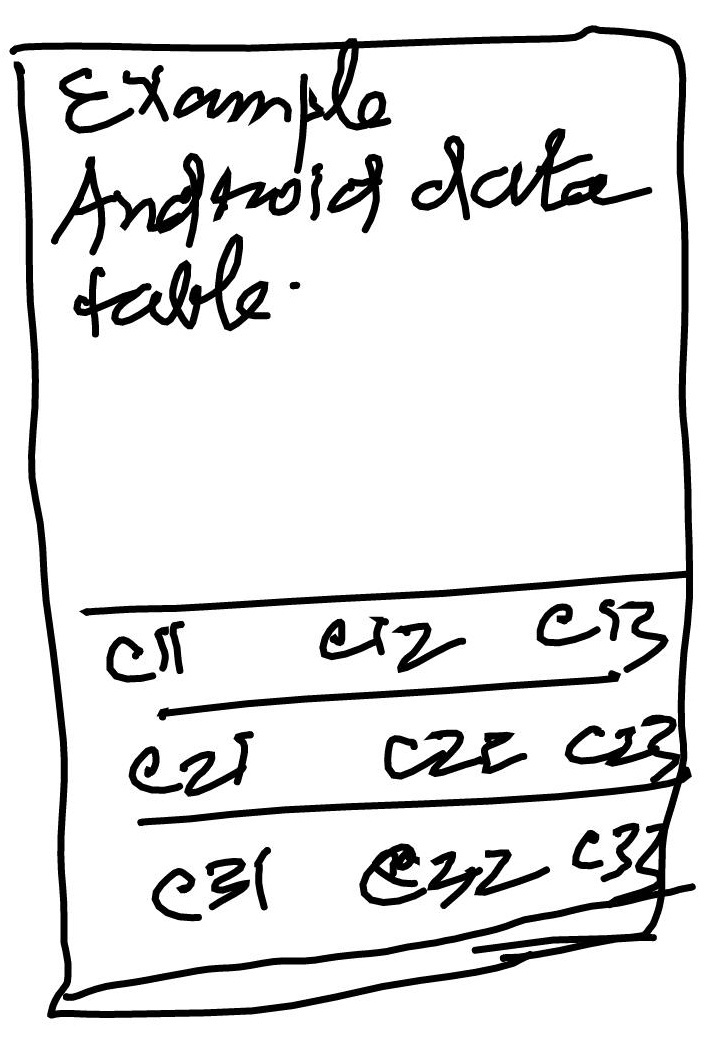 Example
Android data
table.
C11 C12 C13
C21 C22 C23
C31 C32 C33